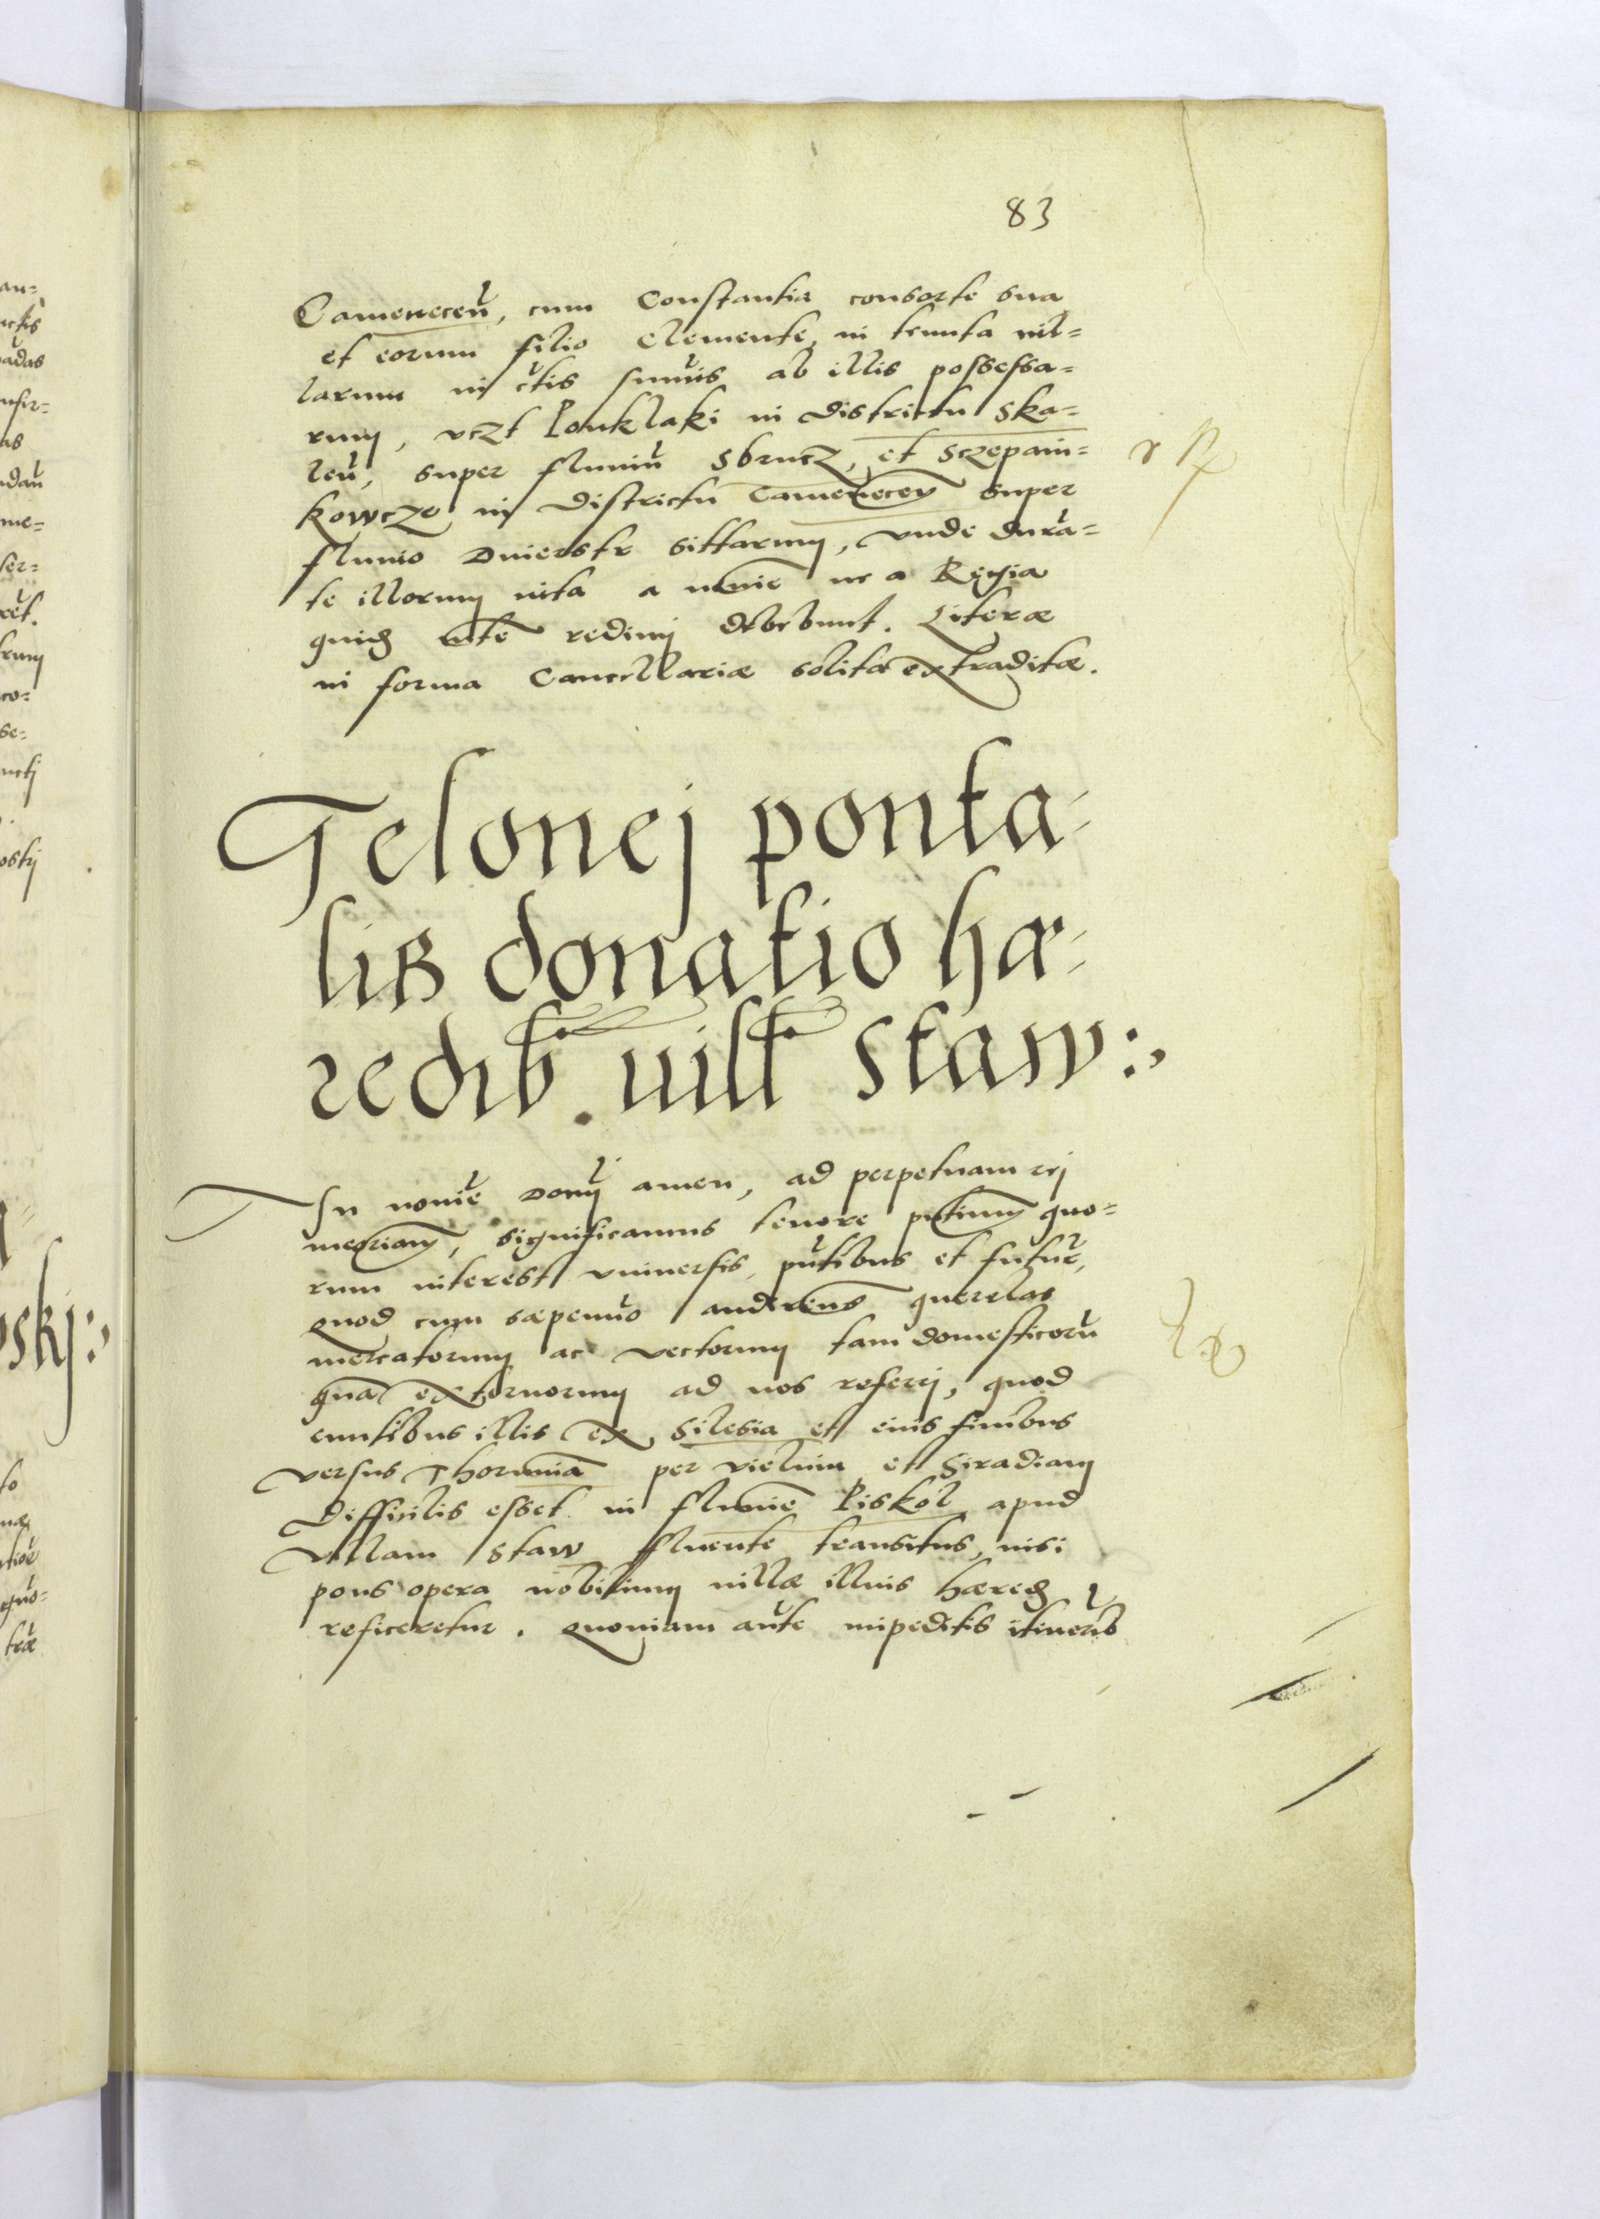 83
Cameneceñ, cum Constantia consorte sua
et eorum filio Clemente, in tenuta vil=
larum in c̃tis sum̃is ab illis possessa=
rum, vczt Pouklaki in districtu Ska=
leñ, super fluuiũ Sbrucz, et Sczepain=
kowcze in districtu Camenecen̄ super
fluuio Dniestr sittarum, vnde dura=
te illorum vita a nem̃ie nec a Regia
quidē m̃te redimi debebunt. Literæ
in forma Cancellariæ solita extraditæ.
Telonej ponta=
lis donatio hæ=
redib. vill Staw:
In nom̃ie Domj amen, ad perpetuam rej
memoriam, significamus tenore pñtium quo=
rum interest vniuersis, pñtibus et futur,
quod cum sæpenũo audirem̃s querelas
mercatorum ac vectorum tam domesticorũ
quã externorum ad nos referrj, quod
euntibus illis ex Silesia et eius finibus
versus Thoruniã per Vieluin et Siradiam
difficilis esset in flum̃ie Piskol apud
villam Staw fluente transitus, nisi
pons opera nobilium villæ illius hæredē
reficeretur. Quoniam aũte impeditis itinerib